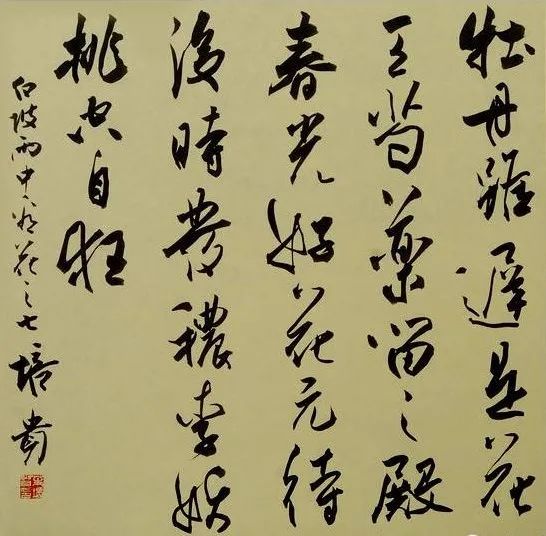 牡丹雖遲是花
王芍藥留之殿
春光好花元待
後時發穠李妖
桃空自狂
白坡雨中花之七 培貴